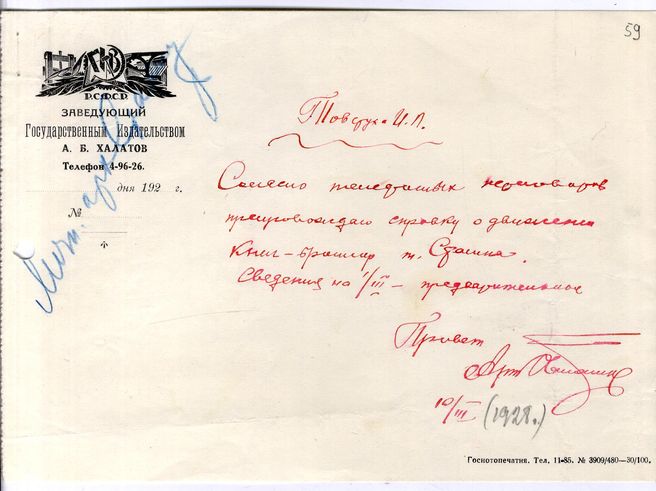 59
ГИЗ
Р.С.Ф.С.Р.
ЗАВЕДУЮЩИЙ
Государственным Издательством
А. Б. ХАЛАТОВ
Телефон 4-96-26.
дня 192 г.
№
Товстухе И.П.
Согласно телефонных переговоров
препровождаю справку о движении
книг-брошюр т. Сталина.
Сведения на 1/III – предварительные
Привет
Арт Халатов
10/III (1928г.)
Госнотопечатня. Тел. 11-85. № 3909/480—30/100.